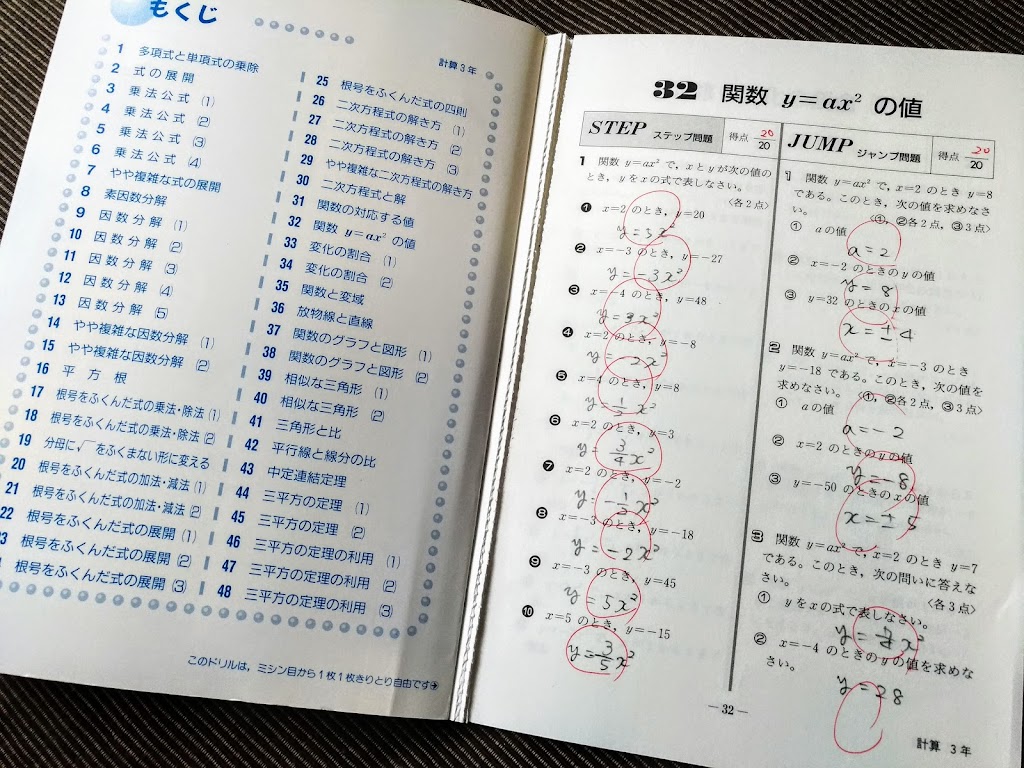 もくじ
計算3年
1 多項式と単項式の乗除
2 式の展開
3 乗法公式 (1)
4 乗法公式 (2)
5 乗法公式 (3)
6 乗法公式 (4)
7 やや複雑な式の展開
8 素因数分解
9 因数分解 (1)
10 因数分解 (2)
11 因数分解 (3)
12 因数分解 (4)
13 因数分解 (5)
14 やや複雑な因数分解 (1)
15 やや複雑な因数分解 (2)
16 平方根
17 根号をふくんだ式の乗法・除法 (1)
18 根号をふくんだ式の乗法・除法 (2)
19 分母に√をふくまない形に変える
20 根号をふくんだ式の加法・減法 (1)
21 根号をふくんだ式の加法・減法 (2)
22 根号をふくんだ式の展開 (1)
3 根号をふくんだ式の展開 (2)
根号をふくんだ式の展開 (3)
25 根号をふくんだ式の四則
26 二次方程式の解き方 (1)
27 二次方程式の解き方 (2)
28 二次方程式の解き方 (3)
29 やや複雑な二次方程式の解き方
30 二次方程式と解
31 関数の対応する値
32 関数 y=ax² の値
33 変化の割合 (1)
34 変化の割合 (2)
35 関数と変域
36 放物線と直線
37 関数のグラフと図形 (1)
38 関数のグラフと図形 (2)
39 相似な三角形 (1)
40 相似な三角形 (2)
41 三角形と比
42 平行線と線分の比
43 中定連結定理
44 三平方の定理 (1)
45 三平方の定理 (2)
46 三平方の定理の利用 (1)
47 三平方の定理の利用 (2)
48 三平方の定理の利用 (3)
このドリルは，ミシン目から1枚1枚きりとり自由です
32 関数 y=ax² の値
STEP ステップ問題 得点 20/20
1 関数 y=ax² で，xとyが次の値の
とき，yをxの式で表しなさい。
〈各2点〉
❶ x=2 のとき，y=20
❷ x=−3 のとき，y=−27
y=−3x²
❸ x=−4 のとき，y=48
y=3x²
❹ x=2 のとき，y=−8
❺ x=4 のとき，y=8
❻ x=2 のとき，y=3
y=3/4x²
❼ x=2 のとき，y=−2
❽ x=−3 のとき，y=−18
y=−2x²
❾ x=−3 のとき，y=45
y=5x²
❿ x=5 のとき，y=−15
y=−3/5x²
JUMP ジャンプ問題 得点 20/20
1 関数 y=ax² で，x=2 のとき y=8
である。このとき，次の値を求めなさ
い。 〈①，②各2点，③3点〉
① aの値
a=2
② x=−2 のときのyの値
y=8
③ y=32 のときのxの値
x=±4
2 関数 y=ax² で，x=−3 のとき
y=−18 である。このとき，次の値を
求めなさい。 〈①，②各2点，③3点〉
① aの値
a=−2
② x=2 のときのyの値
y=−8
③ y=−50 のときのxの値
x=±5
3 関数 y=ax² で，x=2 のとき y=7
である。このとき，次の問いに答えな
さい。 〈各3点〉
① yをxの式で表しなさい。
y=7/4x²
② x=−4 のときのyの値を求めな
さい。
y=28
—32—
計算 3年